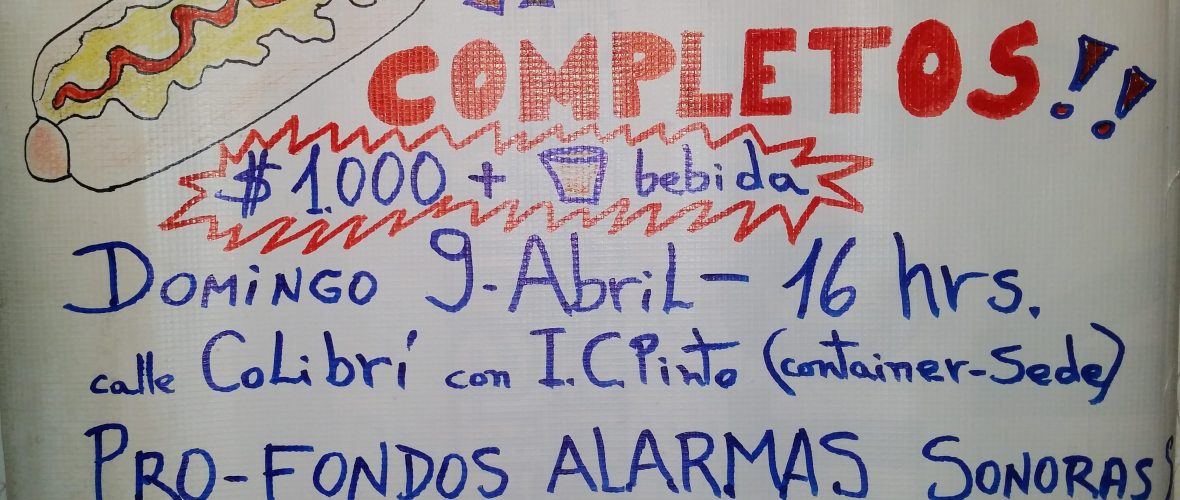 COMPLETOS!!
$1.000 + bebida
DOMINGO 9-AbriL- 16 hrs.
calle CoLibrí con I.C.Pinto (container-Sede)
PRO-FONDOS ALARMAS SONORAS